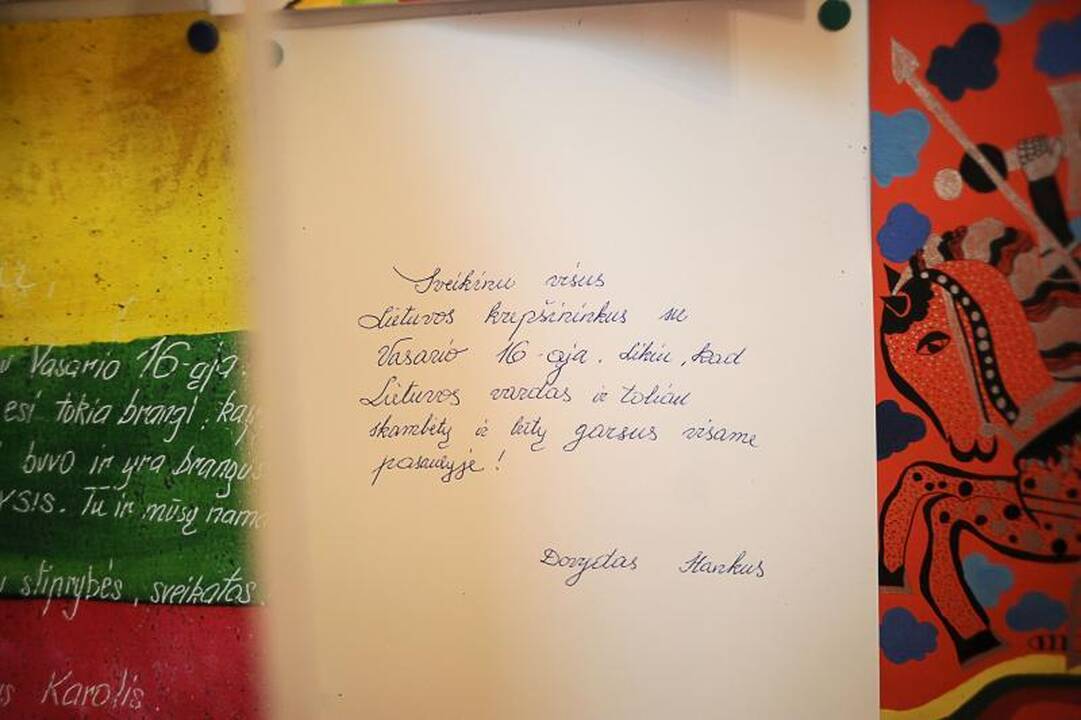 Vasario 16-ąją.
esi tokia brangi, kaip
buvo ir yra brangus
YSIS. Tu ir mūsų nama
stiprybės, sveikatos
Karolis.
Sveikinu visus
Lietuvos krepšininkus su
Vasario 16-ąja. Likiu, kad
Lietuvos vardas ir toliau
skambėtų ir būtų garsus visame
pasaulyje!
Dovydas Stankus